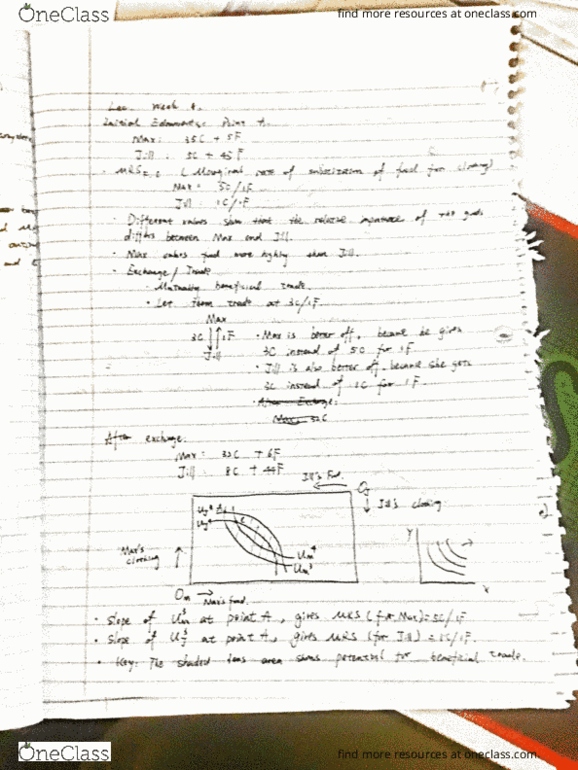 OneClass
find more resources at oneclass.com
Lec. Week 4.
Initial Endowments: Point A.
Max: 35C + 5F
Jill: 5C + 45F
· MRS (Marginal rate of substitution of food for clothing)
Max = 5C/1F
Jill: 1C/1F
· Different values show that the relative importance of the goods
differs between Max and Jill.
· Max values food more highly than Jill.
· Exchange / Trade
· Mutually beneficial trade.
· Let them trade at 3C/1F.
Max
3C 1F
Jill
· Max is better off, because he gives
3C instead of 5C for 1F
· Jill is also better off, because she gets
3C instead of 1C for 1F.
· After Exchange:
Max: 32C
After exchange:
Max: 32C + 6F
Jill: 8C + 44F
Jill's Food
OJ
Jill's clothing
A
Max's
clothing
y
x
Om → Max's food.
· Slope of at point A, gives MRS (for Max) = 5C/1F
· Slope of at point A, gives MRS (for Jill) = 1C/1F.
· Key: The shaded lens area shows potential for beneficial trade.
OneClass
find more resources at oneclass.com